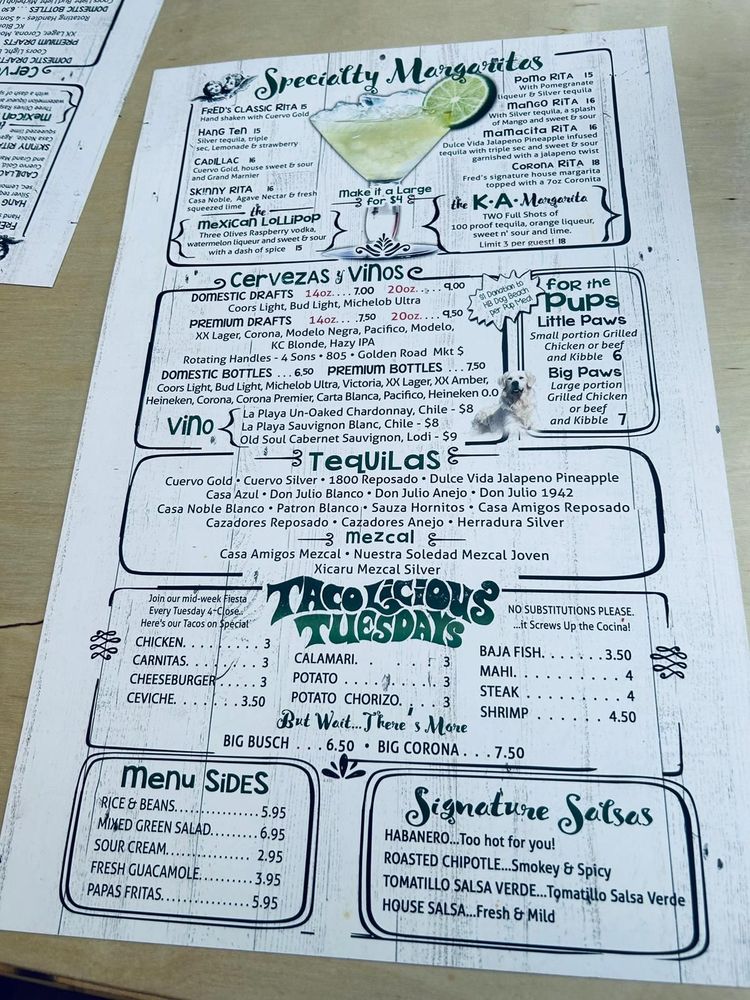 Specialty Margaritas
FRED'S CLASSIC RITA 15
Hand shaken with Cuervo Gold
HANG TEN 15
Silver tequila, triple
sec, Lemonade & strawberry
CADILLAC 16
Cuervo Gold, house sweet & sour
and Grand Marnier
SKINNY RITA 16
Casa Noble, Agave Nectar & fresh
squeezed lime
the
MEXICAN LOLLIPOP
Three Olives Raspberry vodka,
watermelon liqueur and sweet & sour
with a dash of spice 15
Make it a Large
for $4
POMO RITA 15
With Pomegranate
liqueur & Silver tequila
MANGO RITA 16
With Silver tequila, a splash
of Mango and sweet & sour
MAMACITA RITA 16
Dulce Vida Jalapeno Pineapple infused
tequila with triple sec and sweet & sour
garnished with a jalapeno twist
CORONA RITA 18
Fred's signature house margarita
topped with a 7oz Coronita
the K.A. Margarita
TWO Full Shots of
100 proof tequila, orange liqueur,
sweet n' sour and lime.
Limit 3 per guest! 18
CERVEZAS y VINOS
DOMESTIC DRAFTS 14oz....7.00 20oz....9.00
Coors Light, Bud Light, Michelob Ultra
PREMIUM DRAFTS 14oz. ...7.50 20oz. ...9.50
XX Lager, Corona, Modelo Negra, Pacifico, Modelo,
KC Blonde, Hazy IPA
Rotating Handles - 4 Sons • 805 • Golden Road Mkt $
DOMESTIC BOTTLES ....6.50 PREMIUM BOTTLES ....7.50
Coors Light, Bud Light, Michelob Ultra, Victoria, XX Lager, XX Amber,
Heineken, Corona, Corona Premier, Carta Blanca, Pacifico, Heineken 0.0
VINO
La Playa Un-Oaked Chardonnay, Chile - $8
La Playa Sauvignon Blanc, Chile - $8
Old Soul Cabernet Sauvignon, Lodi - $9
$1 Donation to
HB Dog Beach
per Pup Meal
FOR the
PUPS
Little Paws
Small portion Grilled
Chicken or beef
and Kibble 6
Big Paws
Large portion
Grilled Chicken
or beef
and Kibble 7
TEQUILAS
Cuervo Gold • Cuervo Silver • 1800 Reposado • Dulce Vida Jalapeno Pineapple
Casa Azul • Don Julio Blanco • Don Julio Anejo • Don Julio 1942
Casa Noble Blanco • Patron Blanco • Sauza Hornitos • Casa Amigos Reposado
Cazadores Reposado • Cazadores Anejo • Herradura Silver
MEZCAL
Casa Amigos Mezcal • Nuestra Soledad Mezcal Joven
Xicaru Mezcal Silver
TACOLICIOUS
TUESDAYS
Join our mid-week Fiesta
Every Tuesday 4-Close..
Here's our Tacos on Special
NO SUBSTITUTIONS PLEASE.
...it Screws Up the Cocina!
CHICKEN. . . . . . . . 3
CARNITAS. . . . . . . . 3
CHEESEBURGER . . . . 3
CEVICHE. . . . . . . 3.50
CALAMARI. . . . . . . . 3
POTATO . . . . . . . . 3
POTATO CHORIZO. . . . 3
BAJA FISH. . . . . . . 3.50
MAHI. . . . . . . . . . 4
STEAK . . . . . . . . . 4
SHRIMP . . . . . . . 4.50
But Wait...There's More
BIG BUSCH . . . 6.50 • BIG CORONA . . . 7.50
MENU SIDES
RICE & BEANS................5.95
MIXED GREEN SALAD.........6.95
SOUR CREAM................ 2.95
FRESH GUACAMOLE..........3.95
PAPAS FRITAS................5.95
Signature Salsas
HABANERO...Too hot for you!
ROASTED CHIPOTLE...Smokey & Spicy
TOMATILLO SALSA VERDE...Tomatillo Salsa Verde
HOUSE SALSA...Fresh & Mild